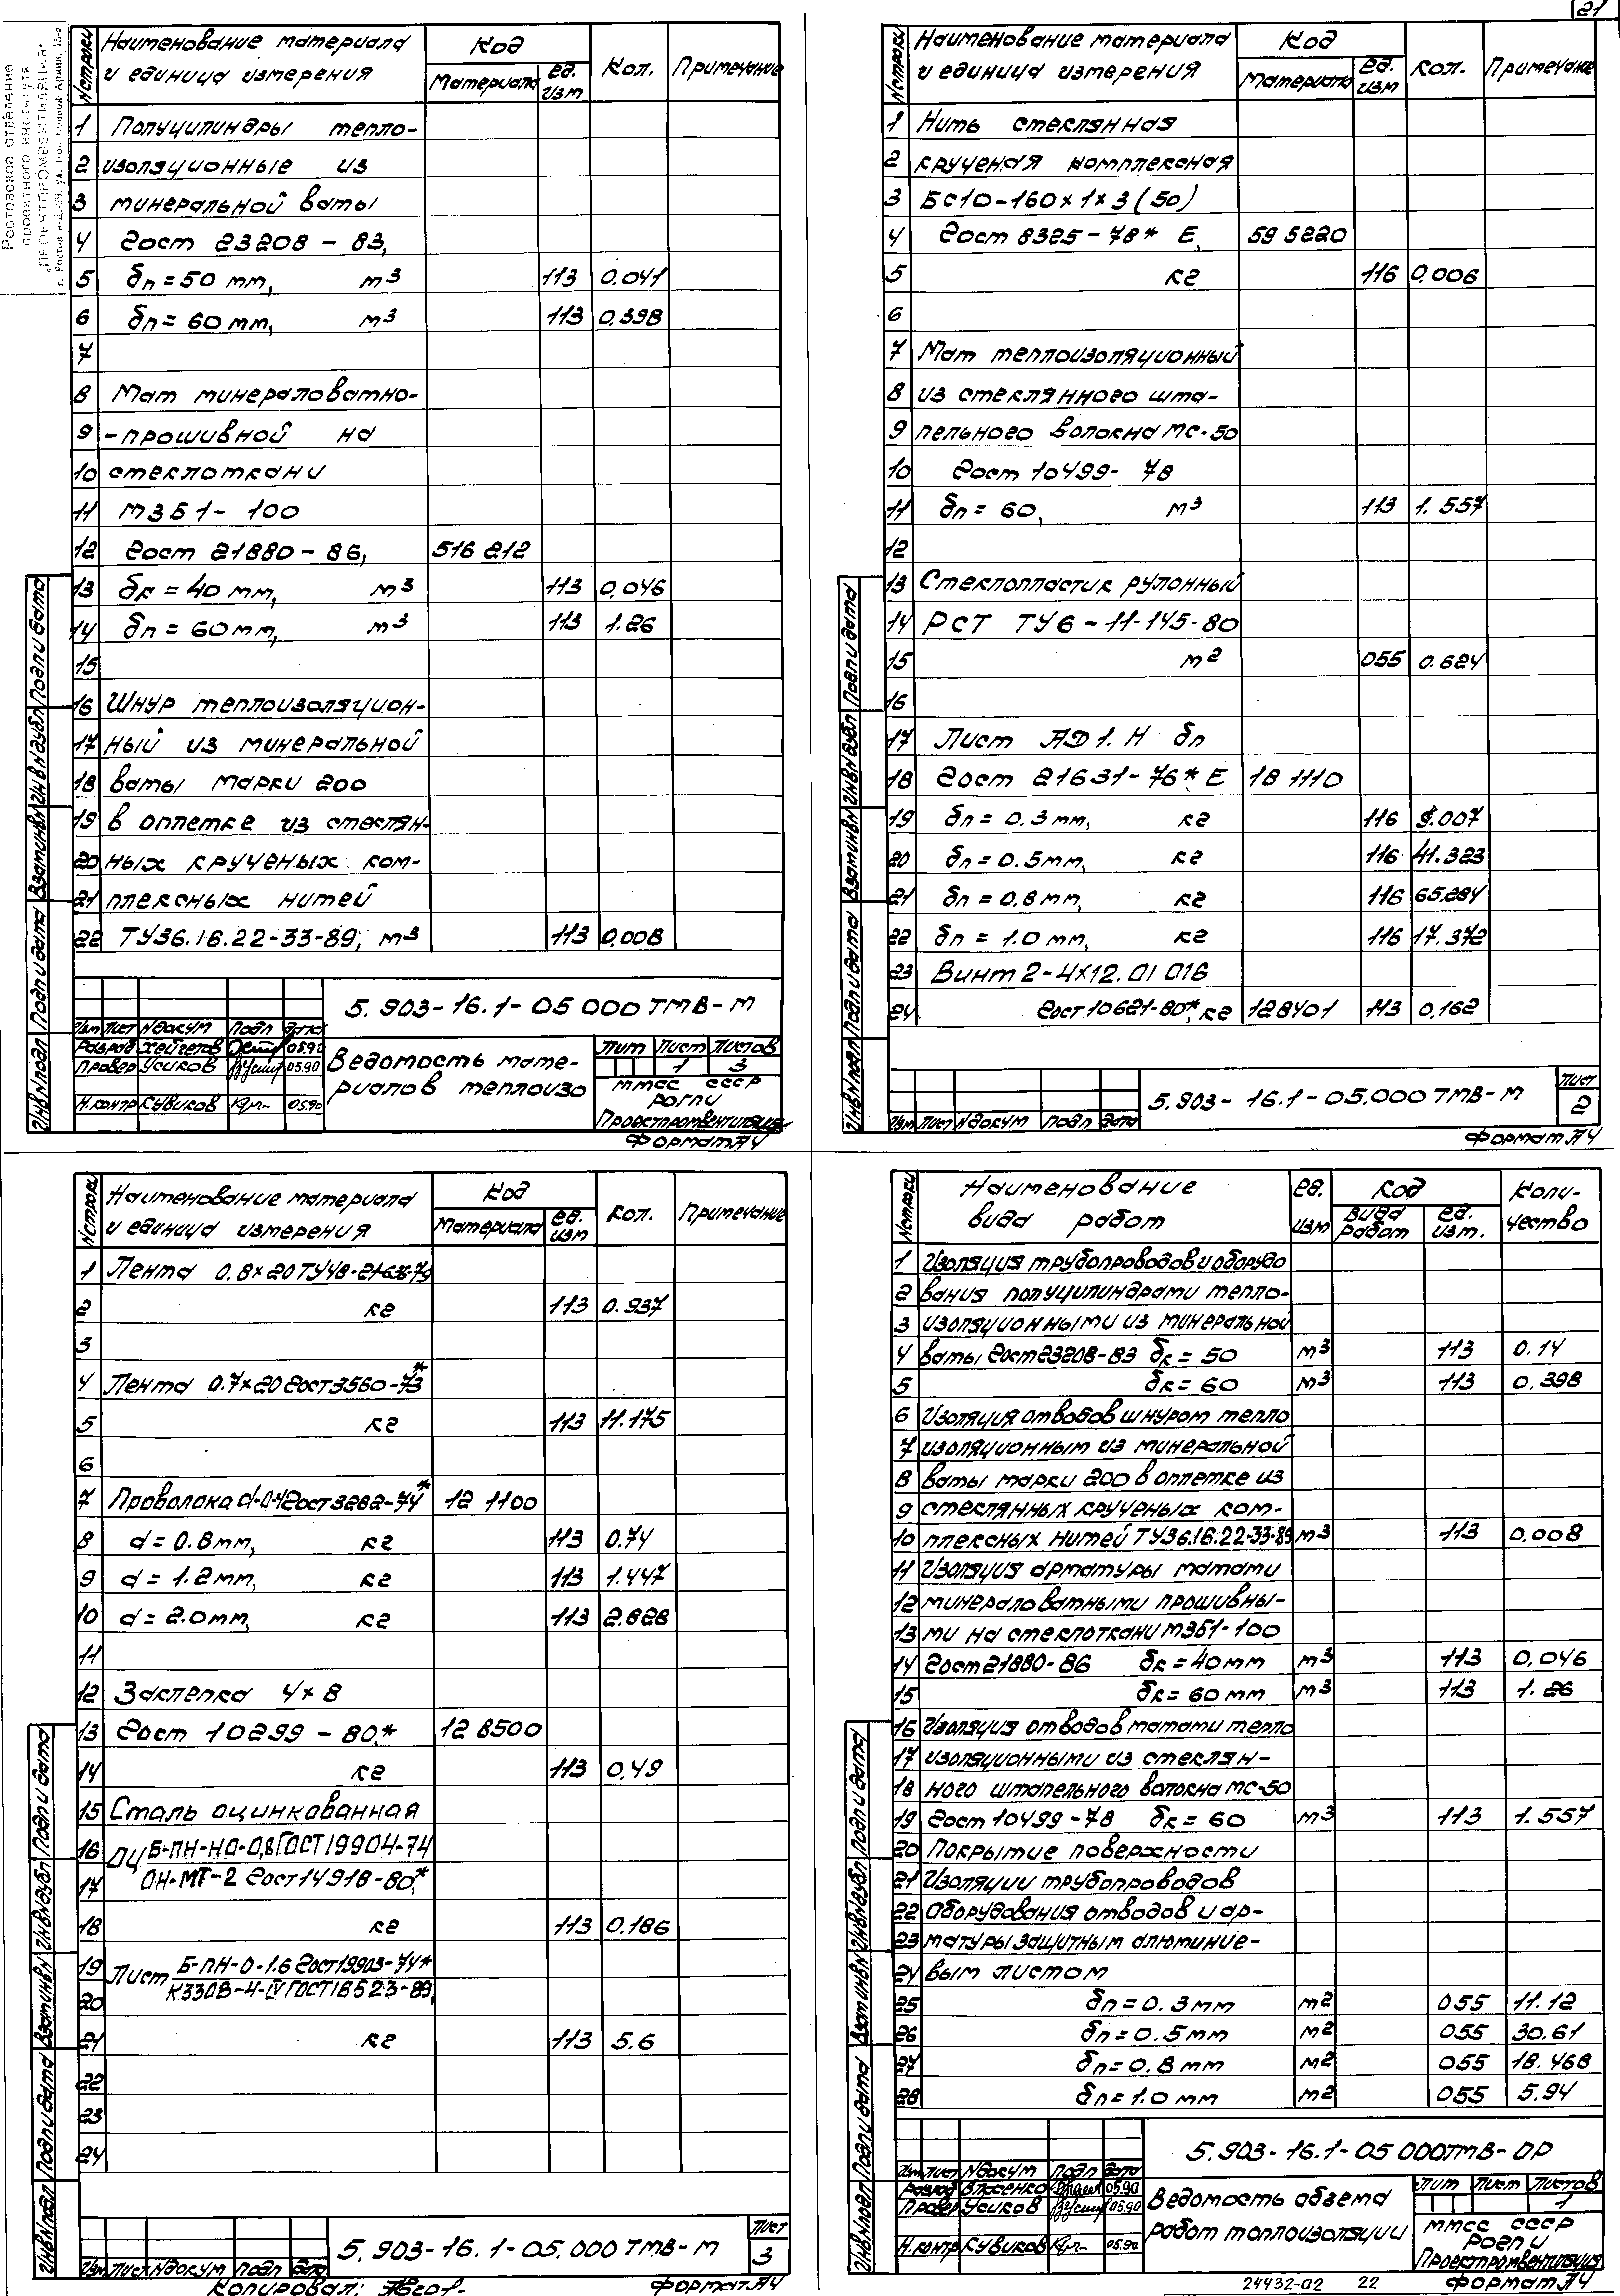 21
Ростовское отделение
проектного института
„ПРОЕКТПРОМВЕНТИЛЯЦИЯ“
N строки Наименование материала и единица измерения Код Материала ед. изм Кол. Примечание
1 Полуцилиндры тепло-
2 изоляционные из
3 минеральной ваты
4 Гост 23208 - 83,
5 δп = 50 мм, м3 113 0.041
6 δп = 60 мм, м3 113 0.398
7
8 Мат минераловатно-
9 -прошивной на
10 стеклоткани
11 МЗБ1- 100
12 Гост 21880 - 86, 516 212
13 δк = 40 мм, м3 113 0.046
14 δп = 60мм, м3 113 1.26
15
16 Шнур теплоизоляцион-
17 ный из минеральной
18 ваты марки 200
19 в оплетке из стеклян-
20 ных крученых ком-
21 плексных нитей
22 ТУ36.16.22-33-89, м3 113 0,008
5. 903-16.1-05 000 ТМВ-М
Изм Лист N докум Подп Дата
Разраб Хейгетов 05.90
Провер Усиков 05.90
Н.контр Кувиков 05.90
Ведомость мате-
риалов теплоизо
Лит Лист Листов
1 3
ММСС СССР
РОГПИ
Проектпромвентиляция
Формат А4
Инв N подл Подп и дата Взам инв N Инв N дубл Подп и дата
N строки Наименование материала и единица измерения Код Материала ед. изм Кол. Примечание
1 Нить стеклянная
2 крученая комплексная
3 БС10-160×1×3(50)
4 Гост 8325-78* Е, 59 5220
5 кг 116 0,006
6
7 Мат теплоизоляционный
8 из стеклянного шта-
9 пельного волокна МС-50
10 Гост 10499- 78
11 δп = 60, м3 113 1. 557
12
13 Стеклопластик рулонный
14 РСТ ТУ6-11-145-80
15 м2 055 0.624
16
17 Лист АД1. Н δп
18 Гост 21631-76* Е 18 1110
19 δп = 0.3 мм, кг 116 9.007
20 δп = 0.5мм, кг 116 41.323
21 δп = 0,8 мм, кг 116 65.284
22 δп = 1.0 мм, кг 116 17.372
23 Винт 2-4×12. 01 016
24 Гост 10621-80*, кг 128401 113 0,162
5. 903- 16.1-05.000 ТМВ-М
Изм Лист N докум Подп Дата
Лист
2
Формат А4
Инв N подл Подп и дата Взам инв N Инв N дубл Подп и дата
N строки Наименование материала и единица измерения Код Материала ед. изм Кол. Примечание
1 Лента 0.8×20 ТУ48-21-638-79
2 кг 113 0.937
3
4 Лента 0.7×20 Гост 3560-73*
5 кг 113 11.175
6
7 Проволока d-0-4 Гост 3282-74* 12 1100
8 d = 0.8мм, кг 113 0.74
9 d = 1.2мм, кг 113 1.447
10 d = 2.0мм, кг 113 2.828
11
12 Заклепка 4×8
13 Гост 10299 - 80.* 12 8500
14 кг 113 0,49
15 Сталь оцинкованная
16 ОЦ Б-ПН-НО-0,8 ГОСТ 19904-74
17 ОН-МТ-2 Гост 14918-80,*
18 кг 113 0.186
19 Лист Б-ПН-О-1.6 Гост 19903-74*
20 К330В-4-IV ГОСТ 16523-89,
21 кг 113 5.6
22
23
24
5. 903-16.1-05.000 ТМВ-М
Изм Лист N докум Подп Дата
Лист
3
Копировал:
Формат А4
Инв N подл Подп и дата Взам инв N Инв N дубл Подп и дата
N строки Наименование вида работ ед. изм Код вида работ ед. изм. Коли-чество
1 Изоляция трубопроводов и оборудо
2 вания полуцилиндрами тепло-
3 изоляционными из минеральной
4 ваты Гост 23208-83 δк = 50 м3 113 0.14
5 δк = 60 м3 113 0.398
6 Изоляция отводов шнуром тепло
7 изоляционным из минеральной
8 ваты марки 200 в оплетке из
9 стеклянных крученых ком-
10 плексных нитей ТУ36.16.22-33-89 м3 113 0,008
11 Изоляция арматуры матами
12 минераловатными прошивны-
13 ми на стеклоткани МЗБ1-100
14 Гост 21880-86 δк = 40мм м3 113 0,046
15 δк = 60 мм м3 113 1. 26
16 Изоляция отводов матами тепло
17 изоляционными из стеклян-
18 ного штапельного волокна МС-50
19 Гост 10499-78 δк = 60 м3 113 1. 557
20 Покрытие поверхности
21 Изоляции трубопроводов
22 Оборудования отводов и ар-
23 матуры защитным алюминие-
24 вым листом
25 δп = 0. 3 мм м2 055 11.12
26 δп = 0.5мм м2 055 30.61
27 δп = 0.8 мм м2 055 18.468
28 δп = 1.0 мм м2 055 5.94
5. 903-16.1-05 000ТМВ-ОР
Изм Лист N докум Подп Дата
Разраб Власенко 05.90
Провер Усиков 05.90
Н.контр Кувиков 05.90
Ведомость обьема
работ топлоизоляции
Лит Лист Листов
1
ММСС СССР
РОГПИ
Проектпромвентиляция
24432-02 22
Формат А4
Инв N подл Подп и дата Взам инв N Инв N дубл Подп и дата